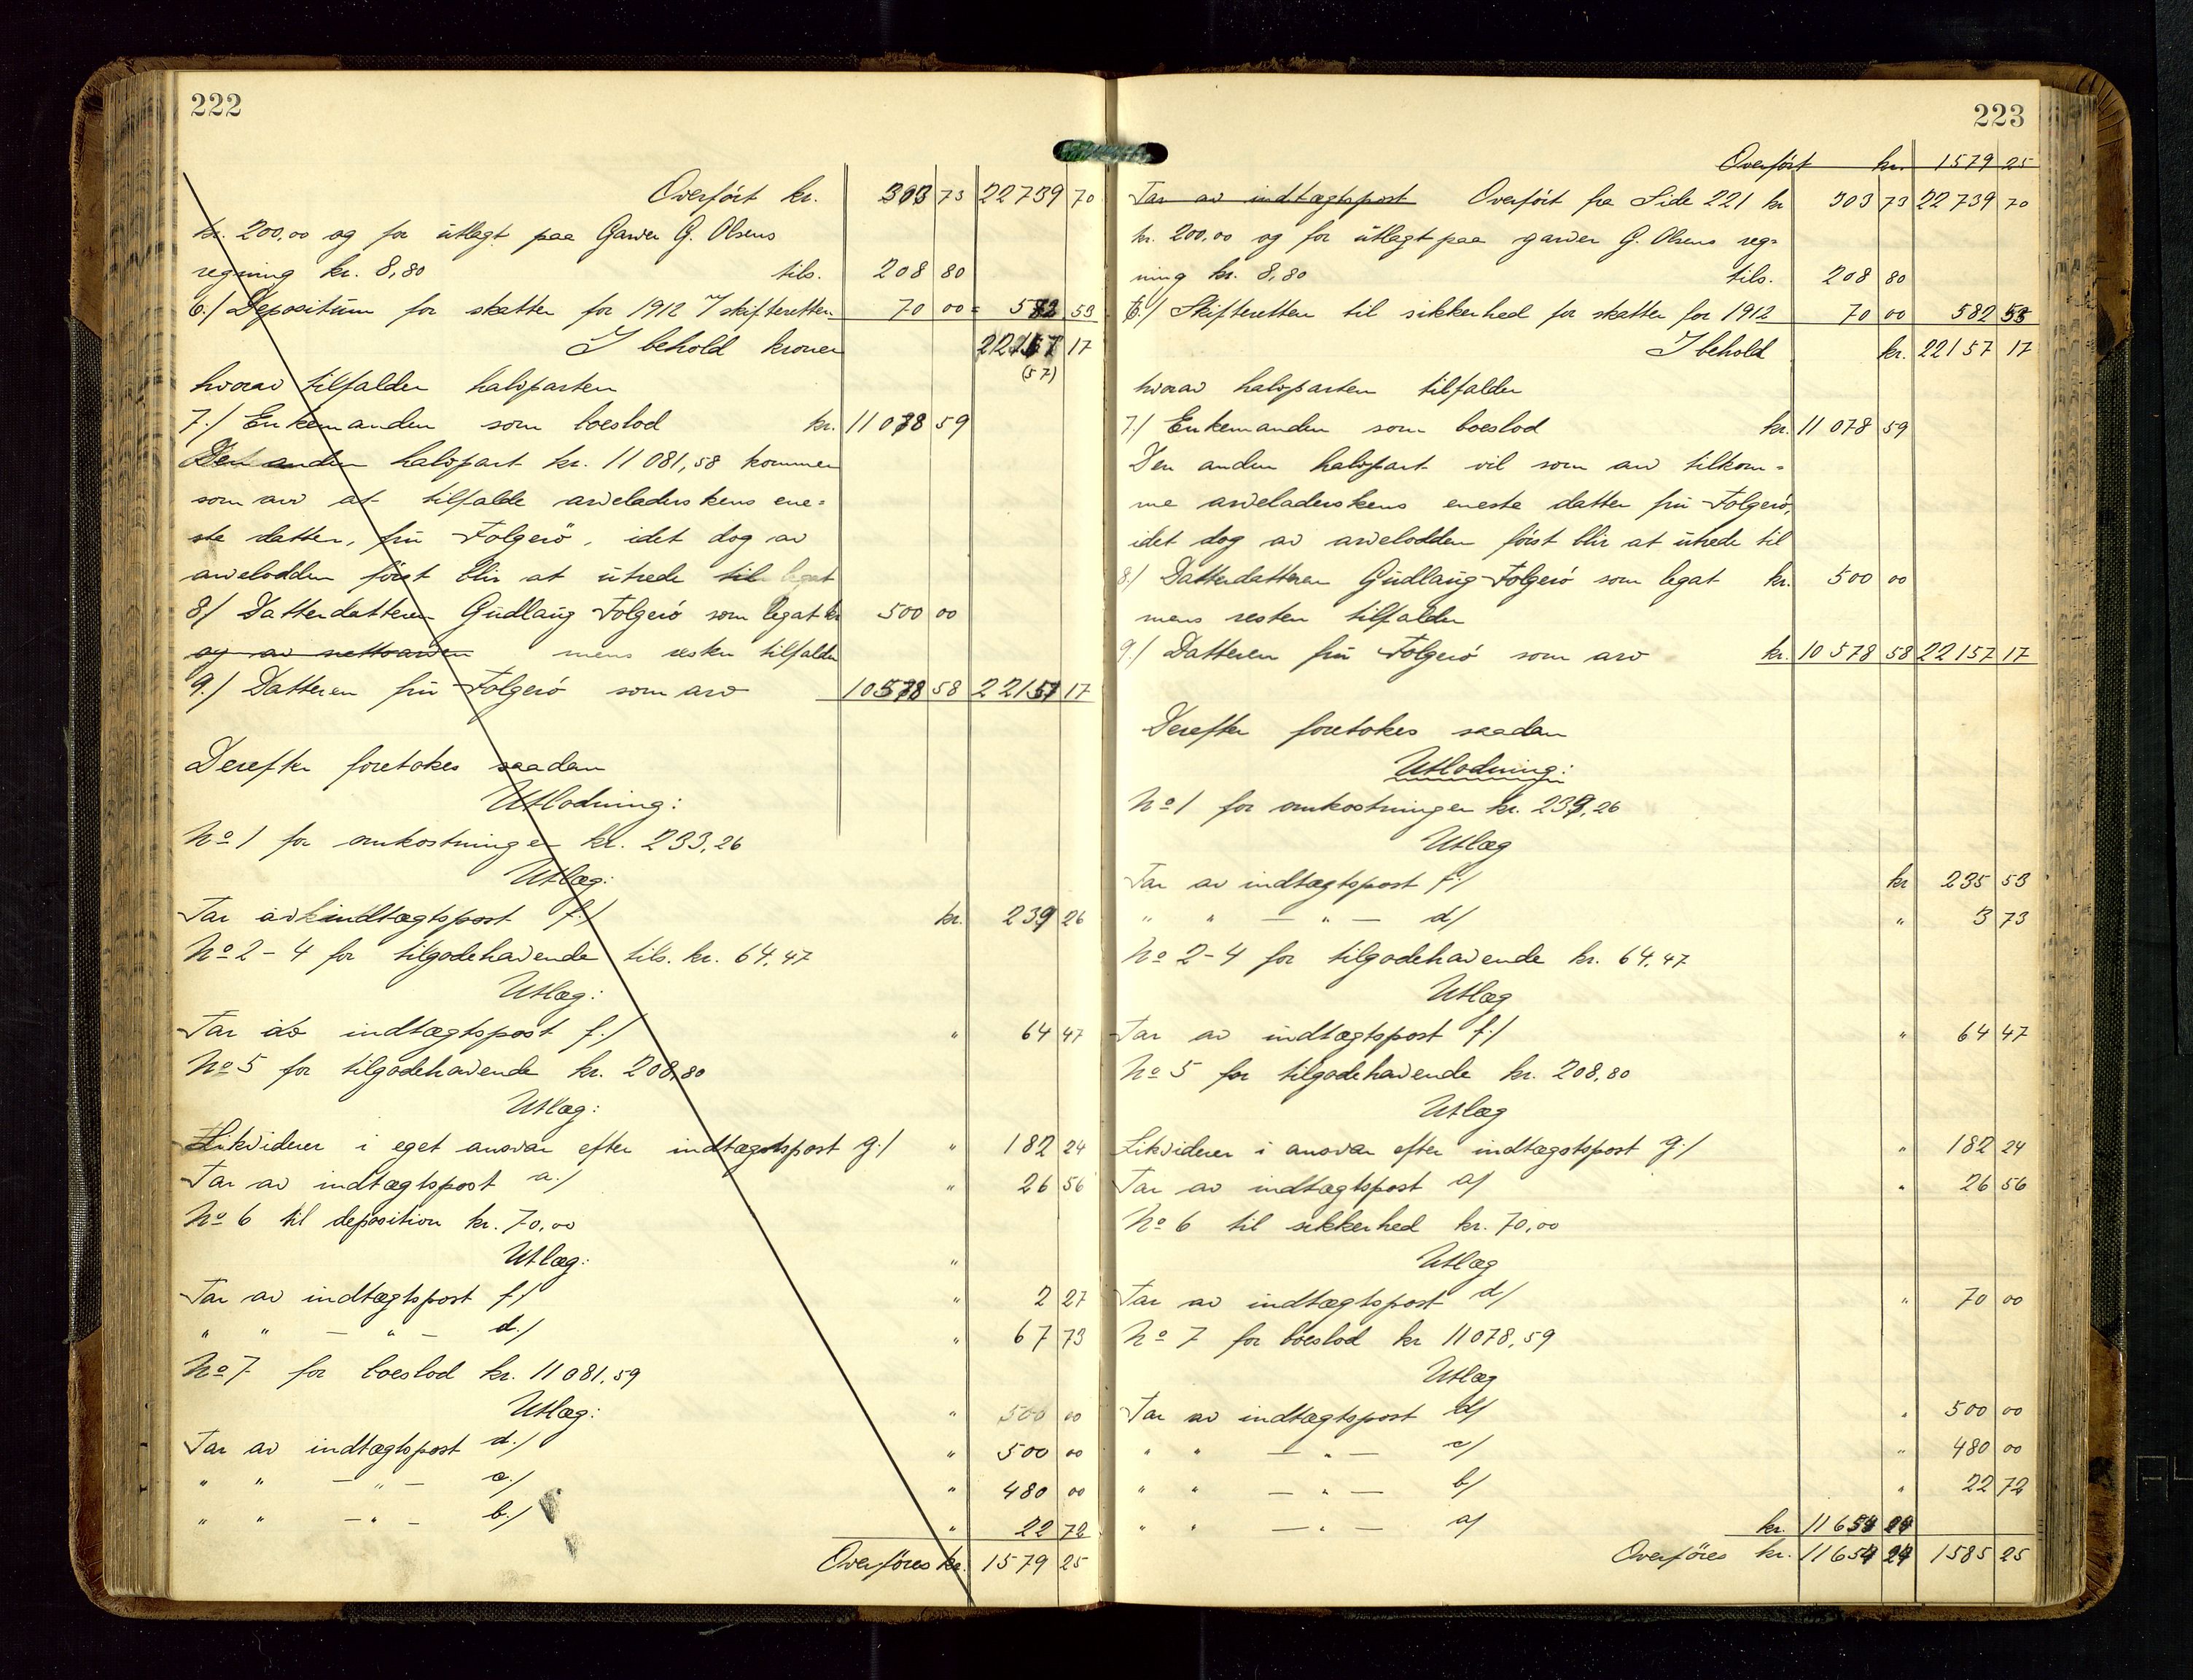 222
Overført kr. 303 73 22739 70
kr. 200,00 og for utlagt paa Garver G. Olsens
regning kr. 8,80 tils. 208 80
6./ Depositum for skatter for 1912 i/ skifteretten 70 00 = 582 53
I behold kroner 22157 17
(57)
hvorav tilfalder halvparten
7./ Enkemanden som boeslod kr. 11078 59
Den anden halvpart kr. 11 081,58 kommer
som arv at tilfalde arveladerskens ene=
ste datter, fru Folgerö, idet dog av
arvelodden först blir at utrede til legat
8/ Datterdatteren Gudlaug Folgerö som legat kr 500 00
og av nettoarven mens resten tilfalder
9./ Datteren fru Folgerö som arv 10578 58 22157 17
Derefter foretokes saadan
Utlodning:
No 1 for omkostninger kr. 233,26
Utlæg:
Tar av indtægtspost f./ kr. 239 26
No 2-4 for tilgodehavende tils. kr. 64,47
Utlæg:
Tar av indtægtspost f./ " 64 47
No 5 for tilgodehavende kr. 208,80
Utlæg:
Likviderer i eget ansvar efter indtægtspost g./ " 182 24
Tar av indtægtspost a./ " 26 56
No 6 til deposition kr. 70,00
Utlæg: "
Tar av indtægtspost f/ " 2 27
" " — " — d./ " 67 73
No 7 for boeslod kr. 11 081,59
Utlæg: " 500 00
Tar av indtægtspost d./ " 500 00
" " — " — c./ " 480 00
" " — " — b./ " 22 72
Overføres kr. 1579 25
223
Overført kr. 1579 25
Tar av indtægtspost Overført fra Side 221 kr 303 73 22739 70
kr. 200,00 og for utlagt paa garver G. Olsens reg=
ning kr. 8,80 tils. 208 80
6./ Skifteretten til sikkerhed for skatter for 1912 70 00 582 53
I behold kr. 22157 17
hvorav halvparten tilfalder
7./ Enkemanden som boeslod kr. 11 078 59
Den anden halvpart vil som arv tilkom=
me arveladerskens eneste datter fru Folgerö,
idet dog av arvelodden först blir at utrede til
8/ Datterdatteren Gudlaug Folgerö som legat kr. 500 00
mens resten tilfalder
9./ Datteren fru Folgerö som arv kr. 10 578 58 22157 17
Derefter foretokes saadan
Utlodning:
No 1 for omkostninger kr. 239,26
Utlæg
Tar av indtægtspost f./ kr 235 53
" " — " — d/ " 3 73
No 2-4 for tilgodehavende kr. 64,47
Utlæg
Tar av indtægtspost f./ " 64 47
No 5 for tilgodehavende kr. 208,80
Utlæg
Likviderer i ansvar efter indtægtspost g./ " 182 24
Tar av indtægtspost a/ " 26 56
No 6 til sikkerhed kr. 70,00
Utlæg
Tar av indtægtspost d/ " 70 00
No 7 for boeslod kr 11 078,59
Utlæg
Tar av indtægtspost d/ " 500 00
" " — " — c/ " 480 00
" " — " — b/ " 22 72
" " — " — a/ kr. 11 654 24
Overføres kr. 11 654 24 1585 25